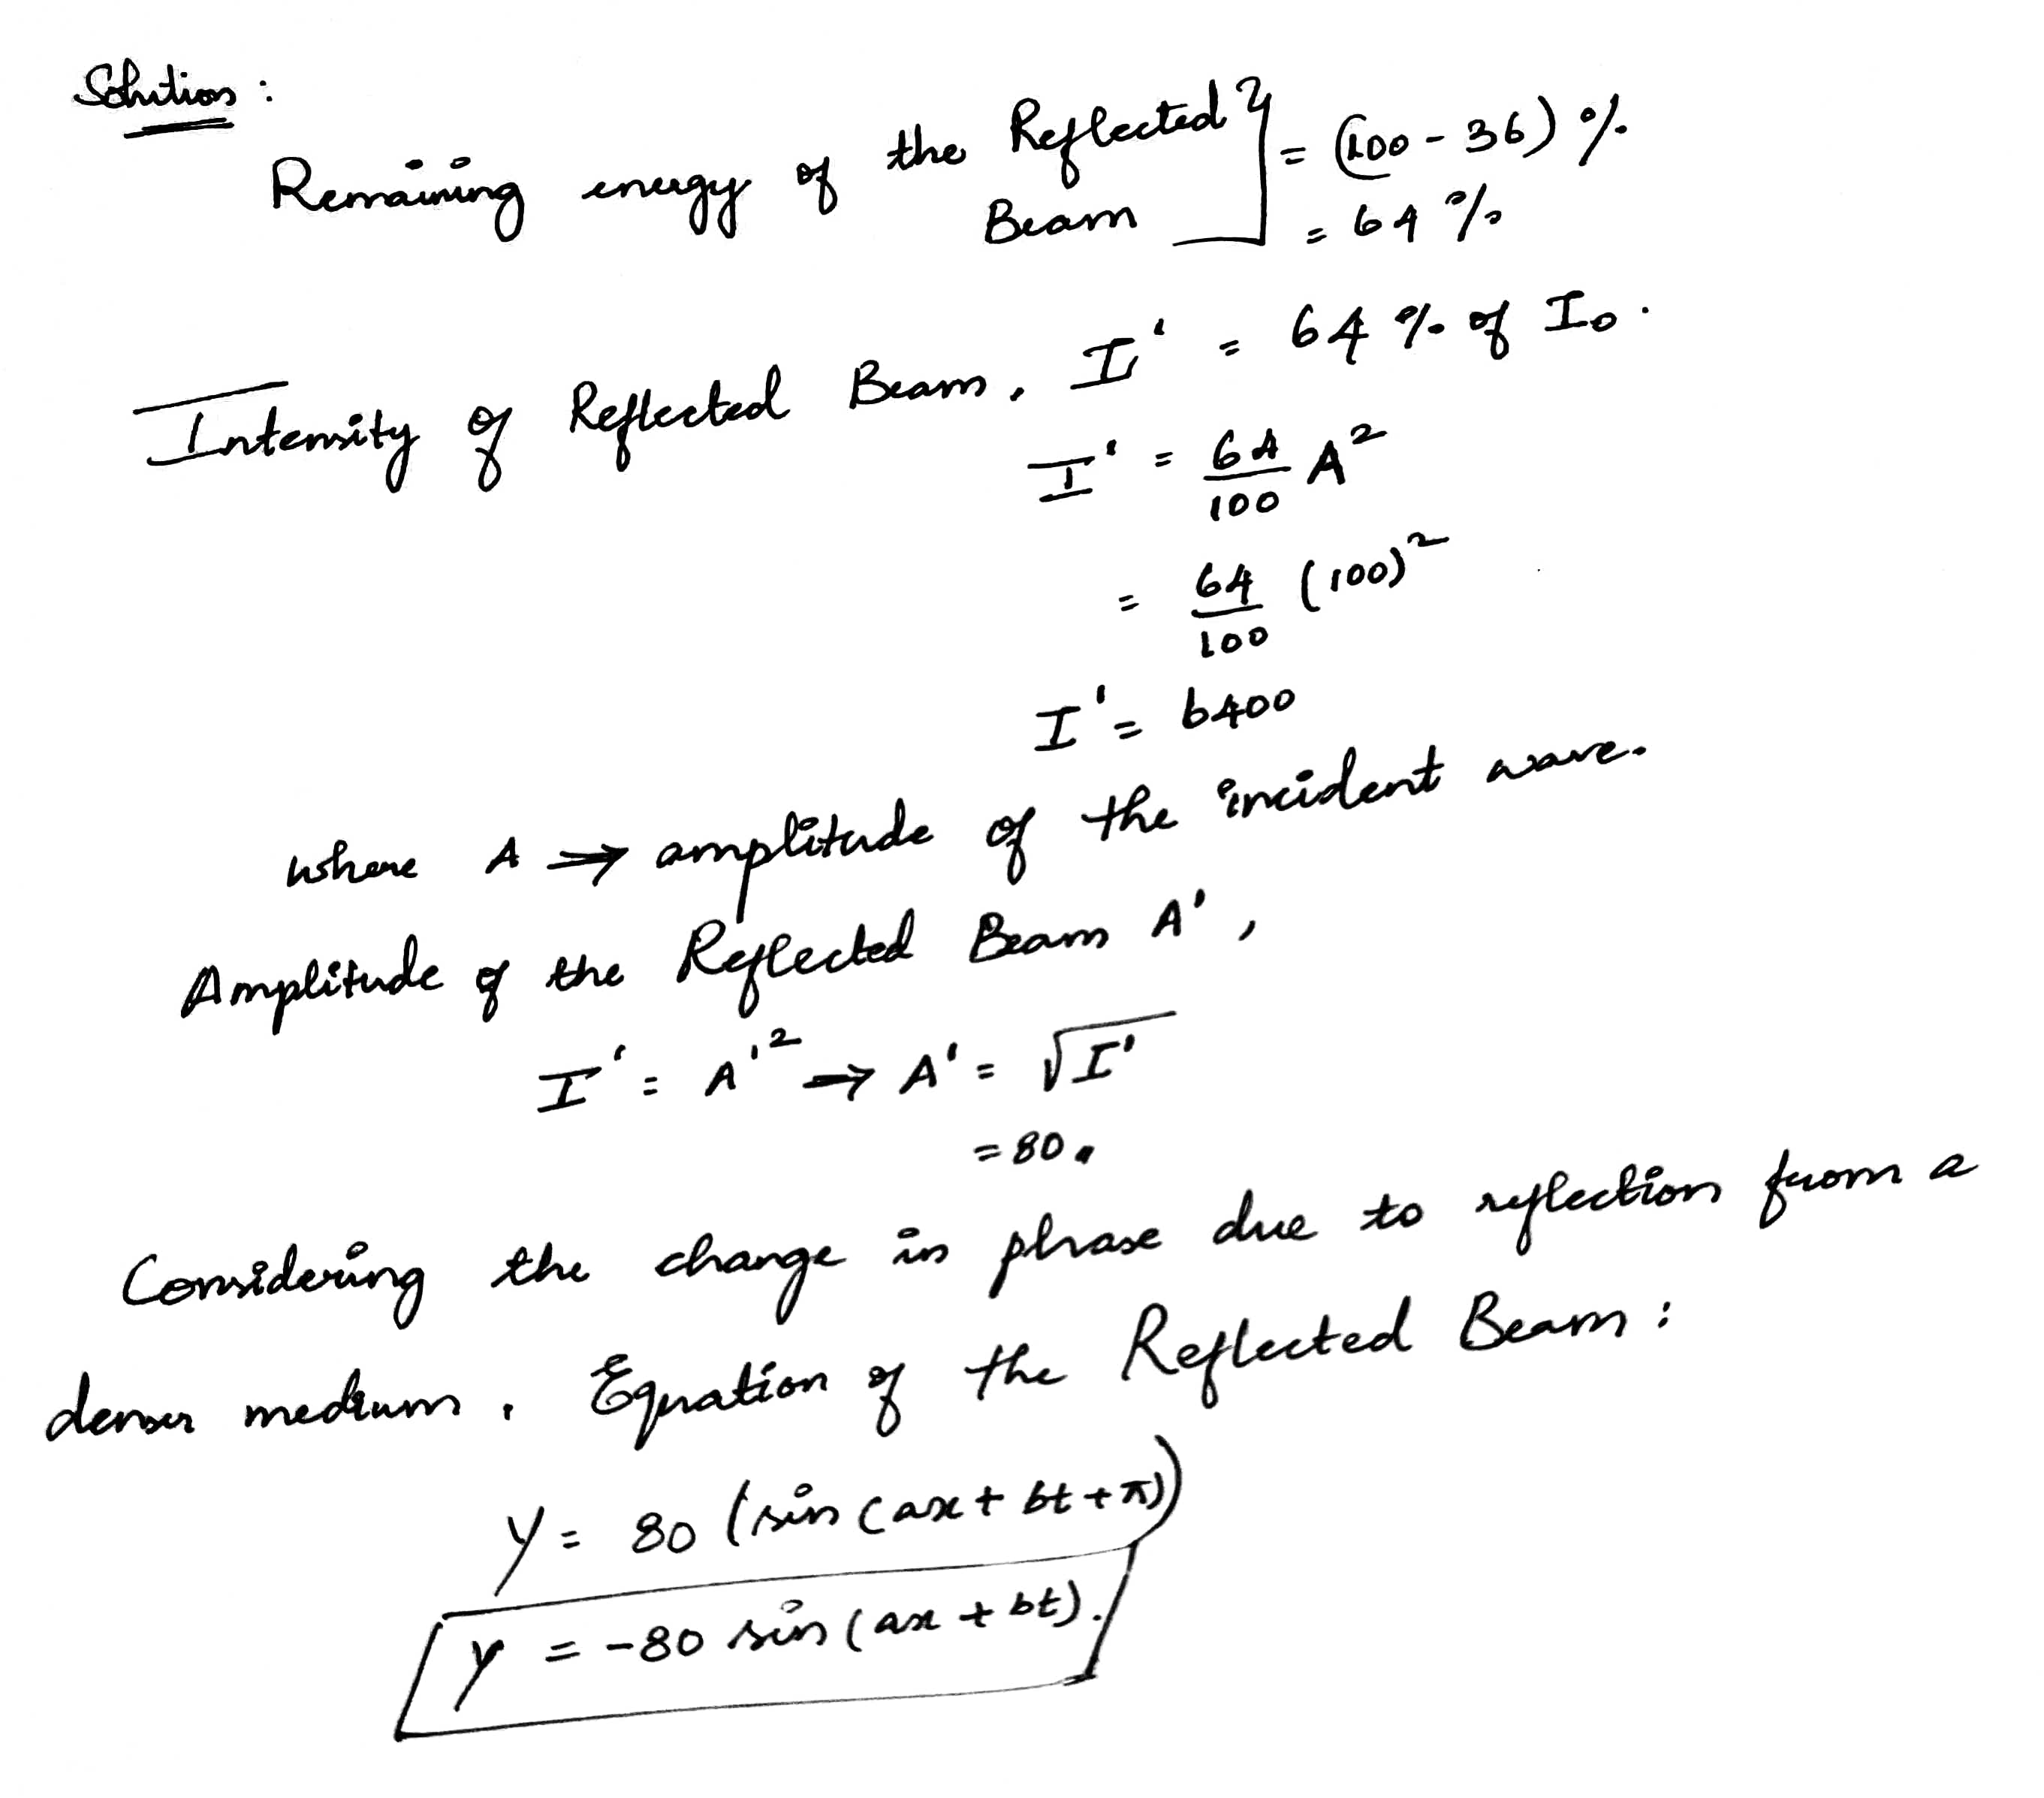 Solution :
Remaining energy of the Reflected } = (100 - 36) %
Beam = 64 %
Intensity of Reflected Beam, I' = 64 % of I₀.
I' = 64/100 A²
= 64/100 (100)²
I' = 6400
where A → amplitude of the incident wave.
Amplitude of the Reflected Beam A',
I' = A'² → A' = √I'
= 80.
Considering the change in phase due to reflection from a
denser medium, Equation of the Reflected Beam :
Y = 80 (sin (ax + bt + π))
Y = -80 sin (ax + bt).